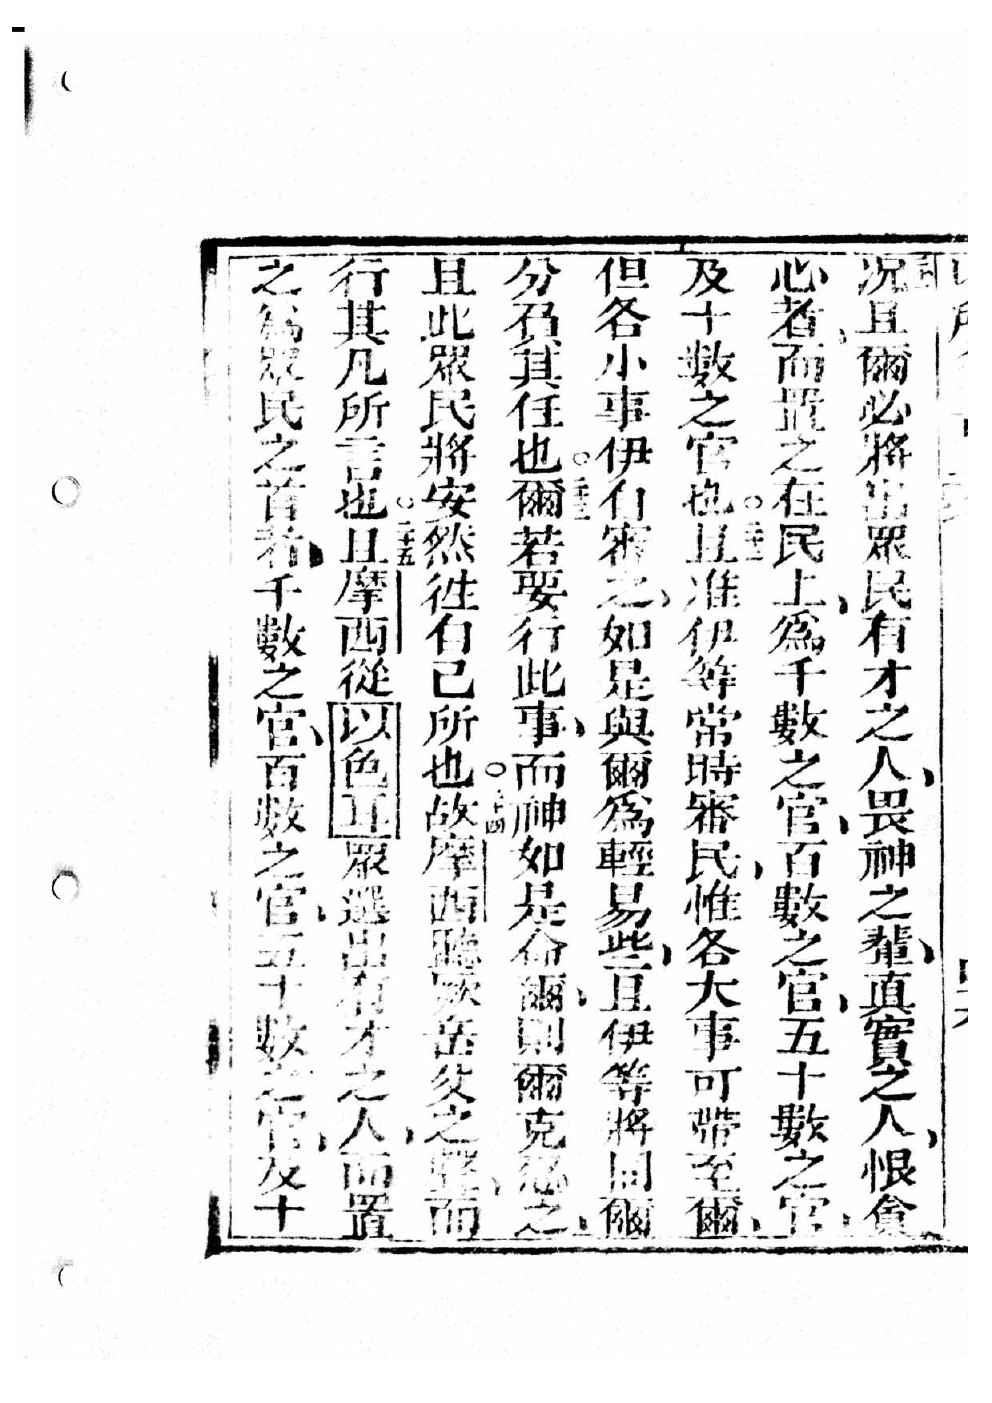 况且爾必將出眾民有才之人、畏神之輩、真實之人、恨貪
心者、而置之在民上、為千數之官、百數之官、五十數之官、
及十數之官也○二十二且准伊等常時審民、惟各大事可帶至爾、
但各小事伊自審之、如是與爾為輕易些、且伊等將同爾
分負其任也○二十三爾若要行此事、而神如是命爾、則爾克忍之、
且此眾民將安然徃自己所也○二十四故摩西聽厥岳父之聲、而
行其凡所言也○二十五且摩西從以色耳眾選出有才之人、而置
之為眾民之首者、千數之官、百數之官、五十數之官、及十